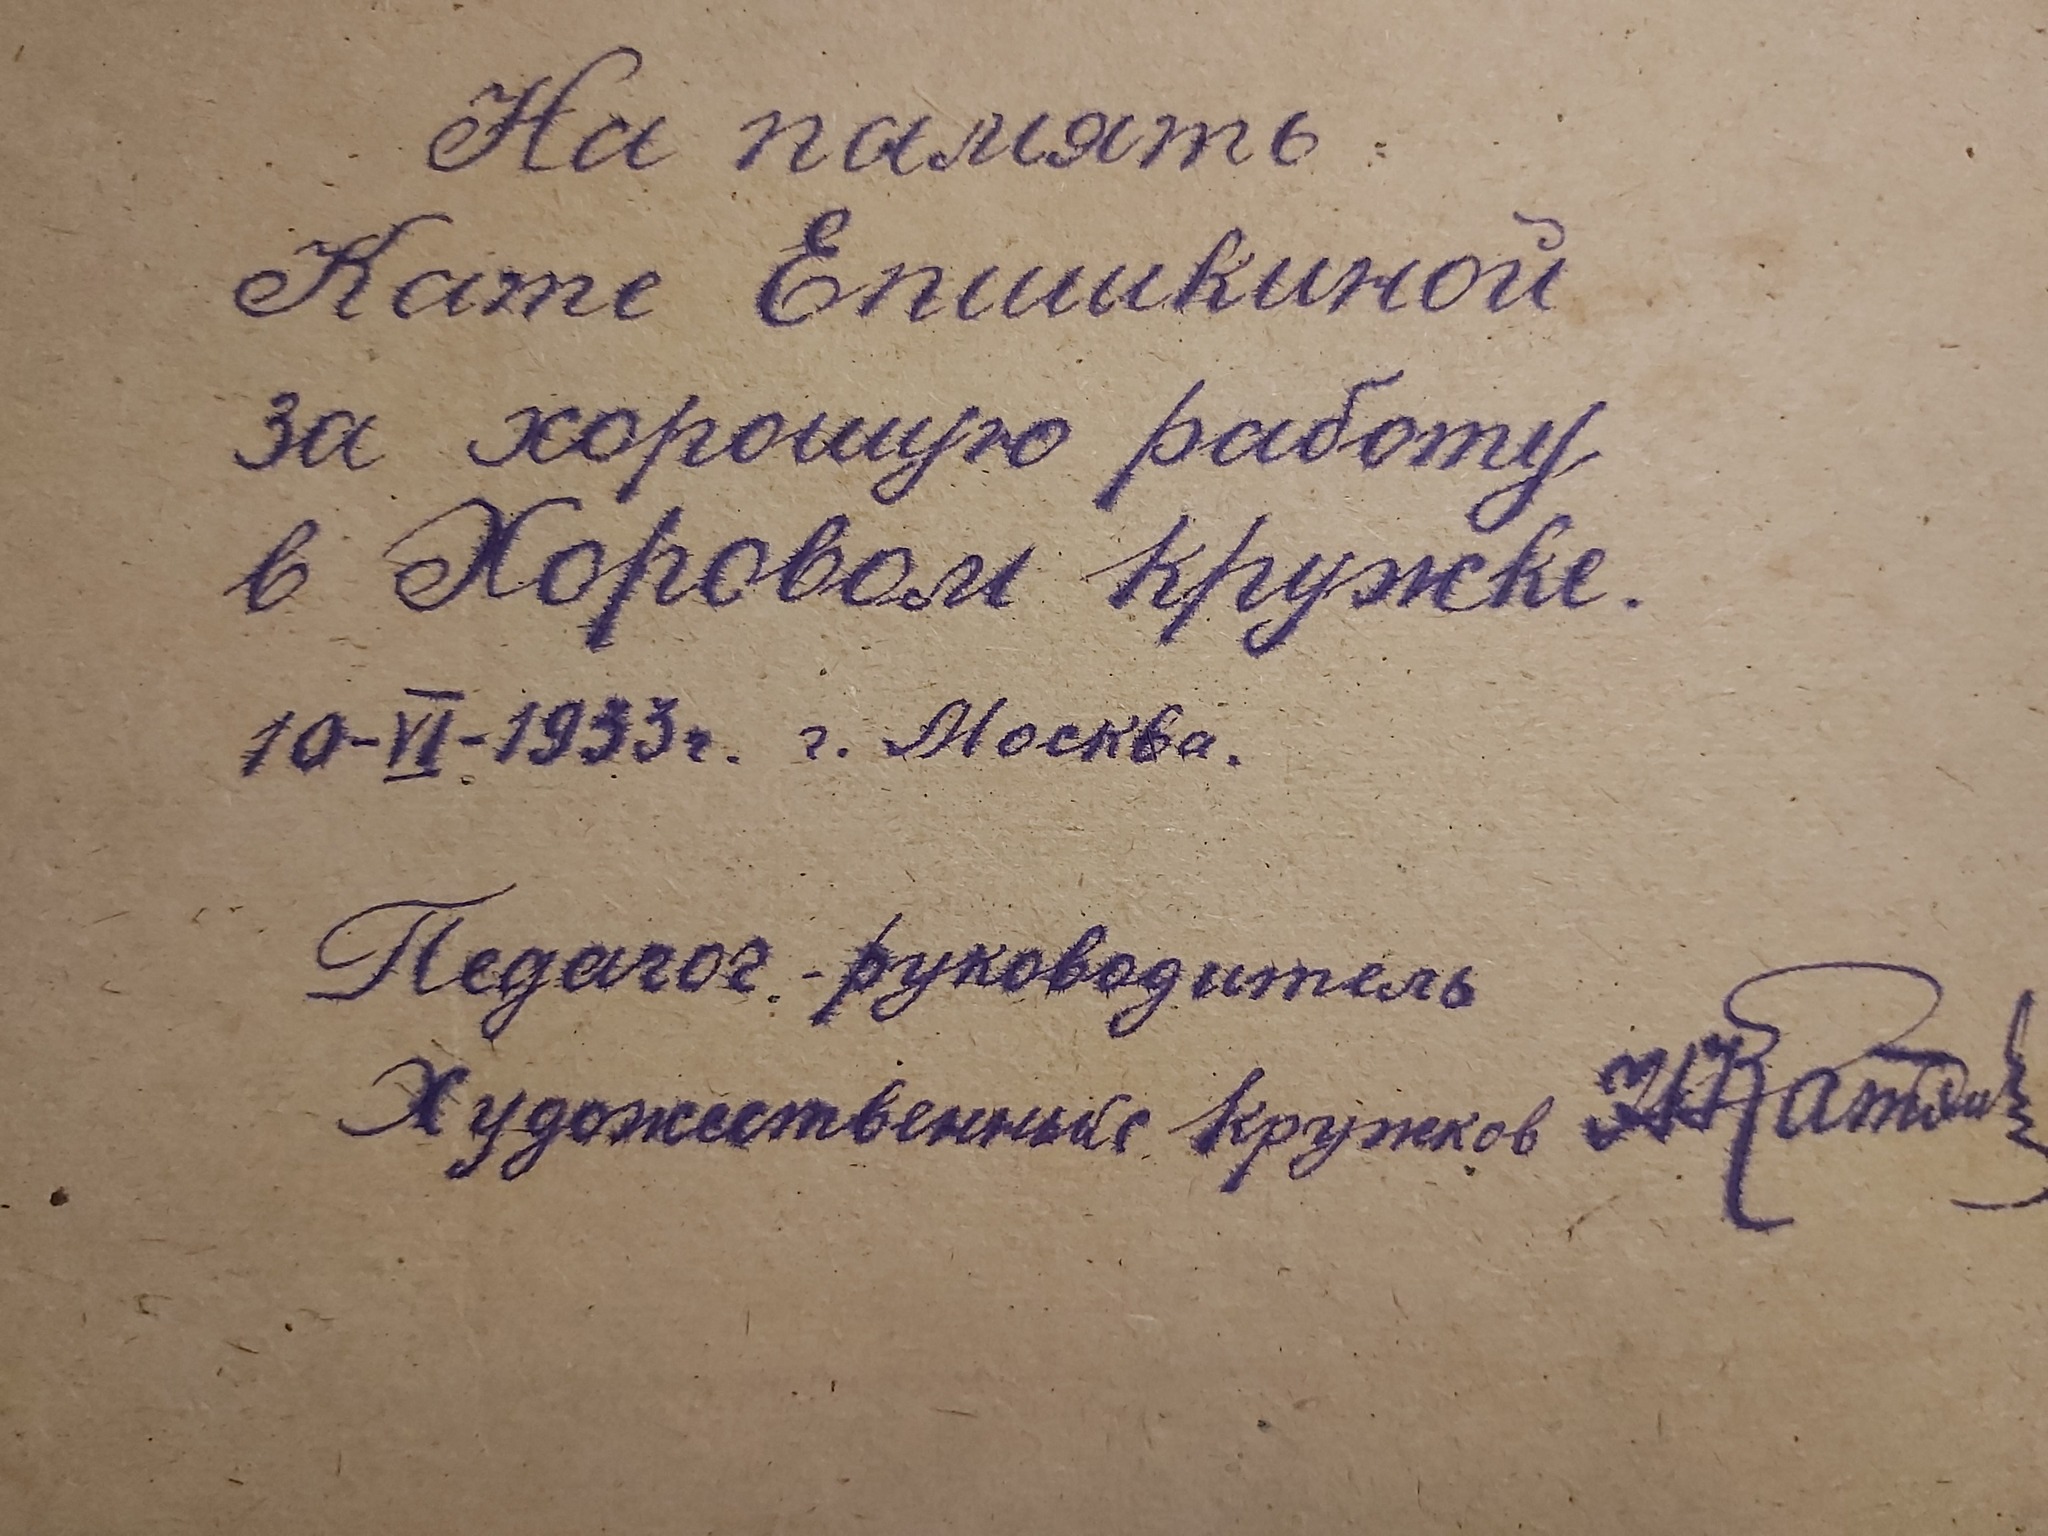 На память
Кате Епишкиной
за хорошую работу
в Хоровом кружке.
10-VI-1933г. г. Москва.
Педагог-руководитель
Художественных кружков